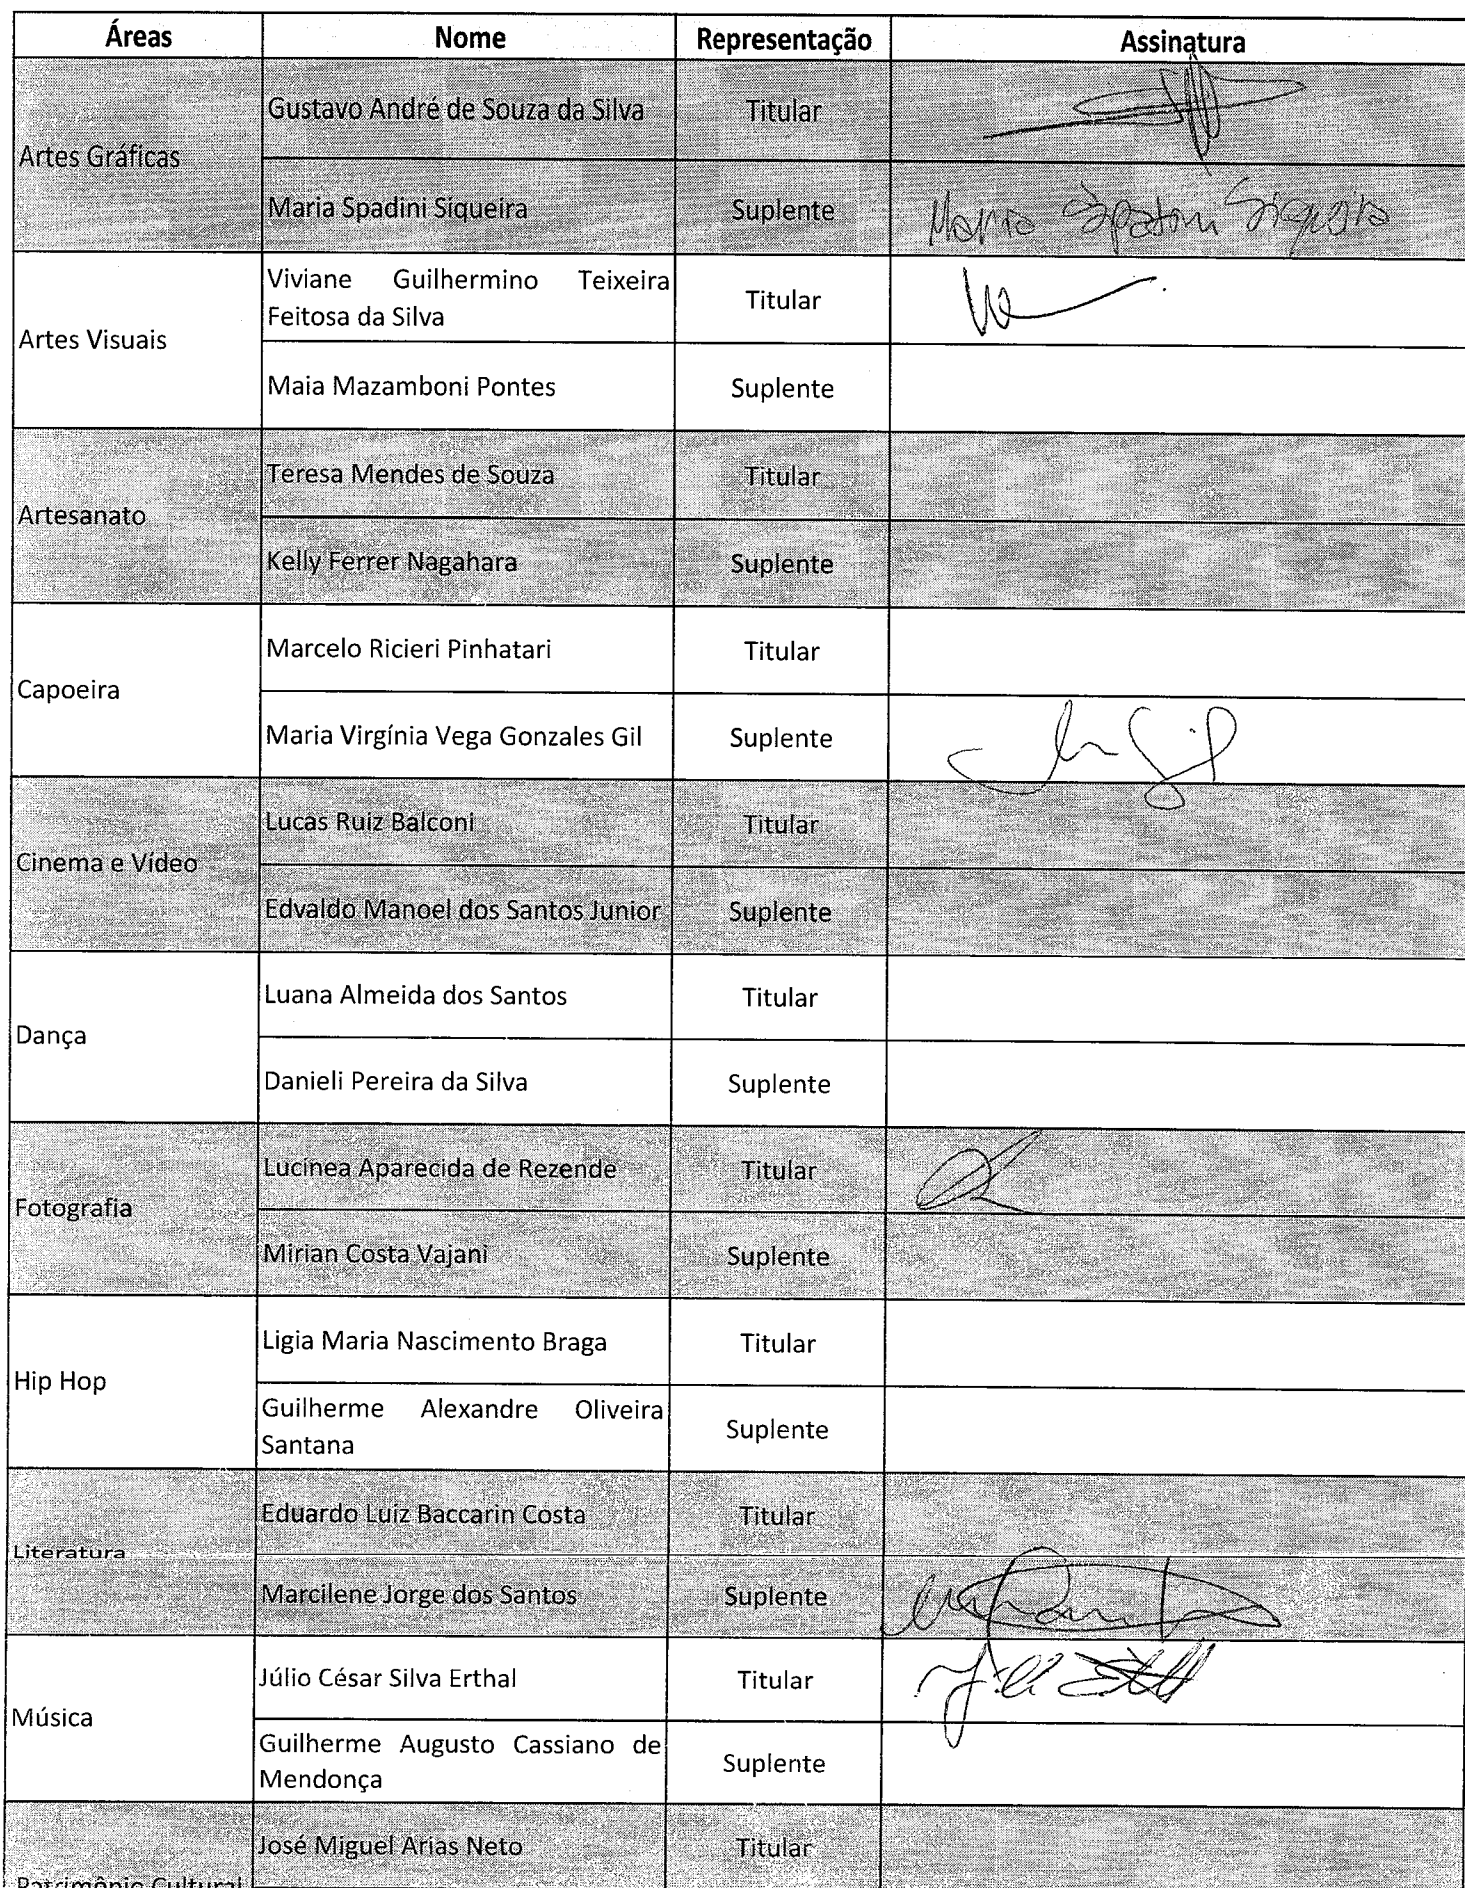 Áreas Nome Representação Assinatura
Artes Gráficas
Gustavo André de Souza da Silva Titular
Maria Spadini Siqueira Suplente Maria Spadini Siqueira
Artes Visuais
Viviane Guilhermino Teixeira
Feitosa da Silva
Titular
Maia Mazamboni Pontes Suplente
Artesanato
Teresa Mendes de Souza Titular
Kelly Ferrer Nagahara Suplente
Capoeira
Marcelo Ricieri Pinhatari Titular
Maria Virgínia Vega Gonzales Gil Suplente
Cinema e Vídeo
Lucas Ruiz Balconi Titular
Edvaldo Manoel dos Santos Junior Suplente
Dança
Luana Almeida dos Santos Titular
Danieli Pereira da Silva Suplente
Fotografia
Lucinea Aparecida de Rezende Titular
Mirian Costa Vajani Suplente
Hip Hop
Ligia Maria Nascimento Braga Titular
Guilherme Alexandre Oliveira
Santana
Suplente
Literatura
Eduardo Luiz Baccarin Costa Titular
Marcilene Jorge dos Santos Suplente
Música
Júlio César Silva Erthal Titular
Guilherme Augusto Cassiano de
Mendonça
Suplente
José Miguel Arias Neto Titular
Patrimônio Cultural